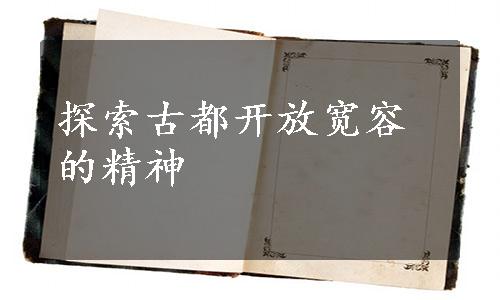 探索古都开放宽容
的精神